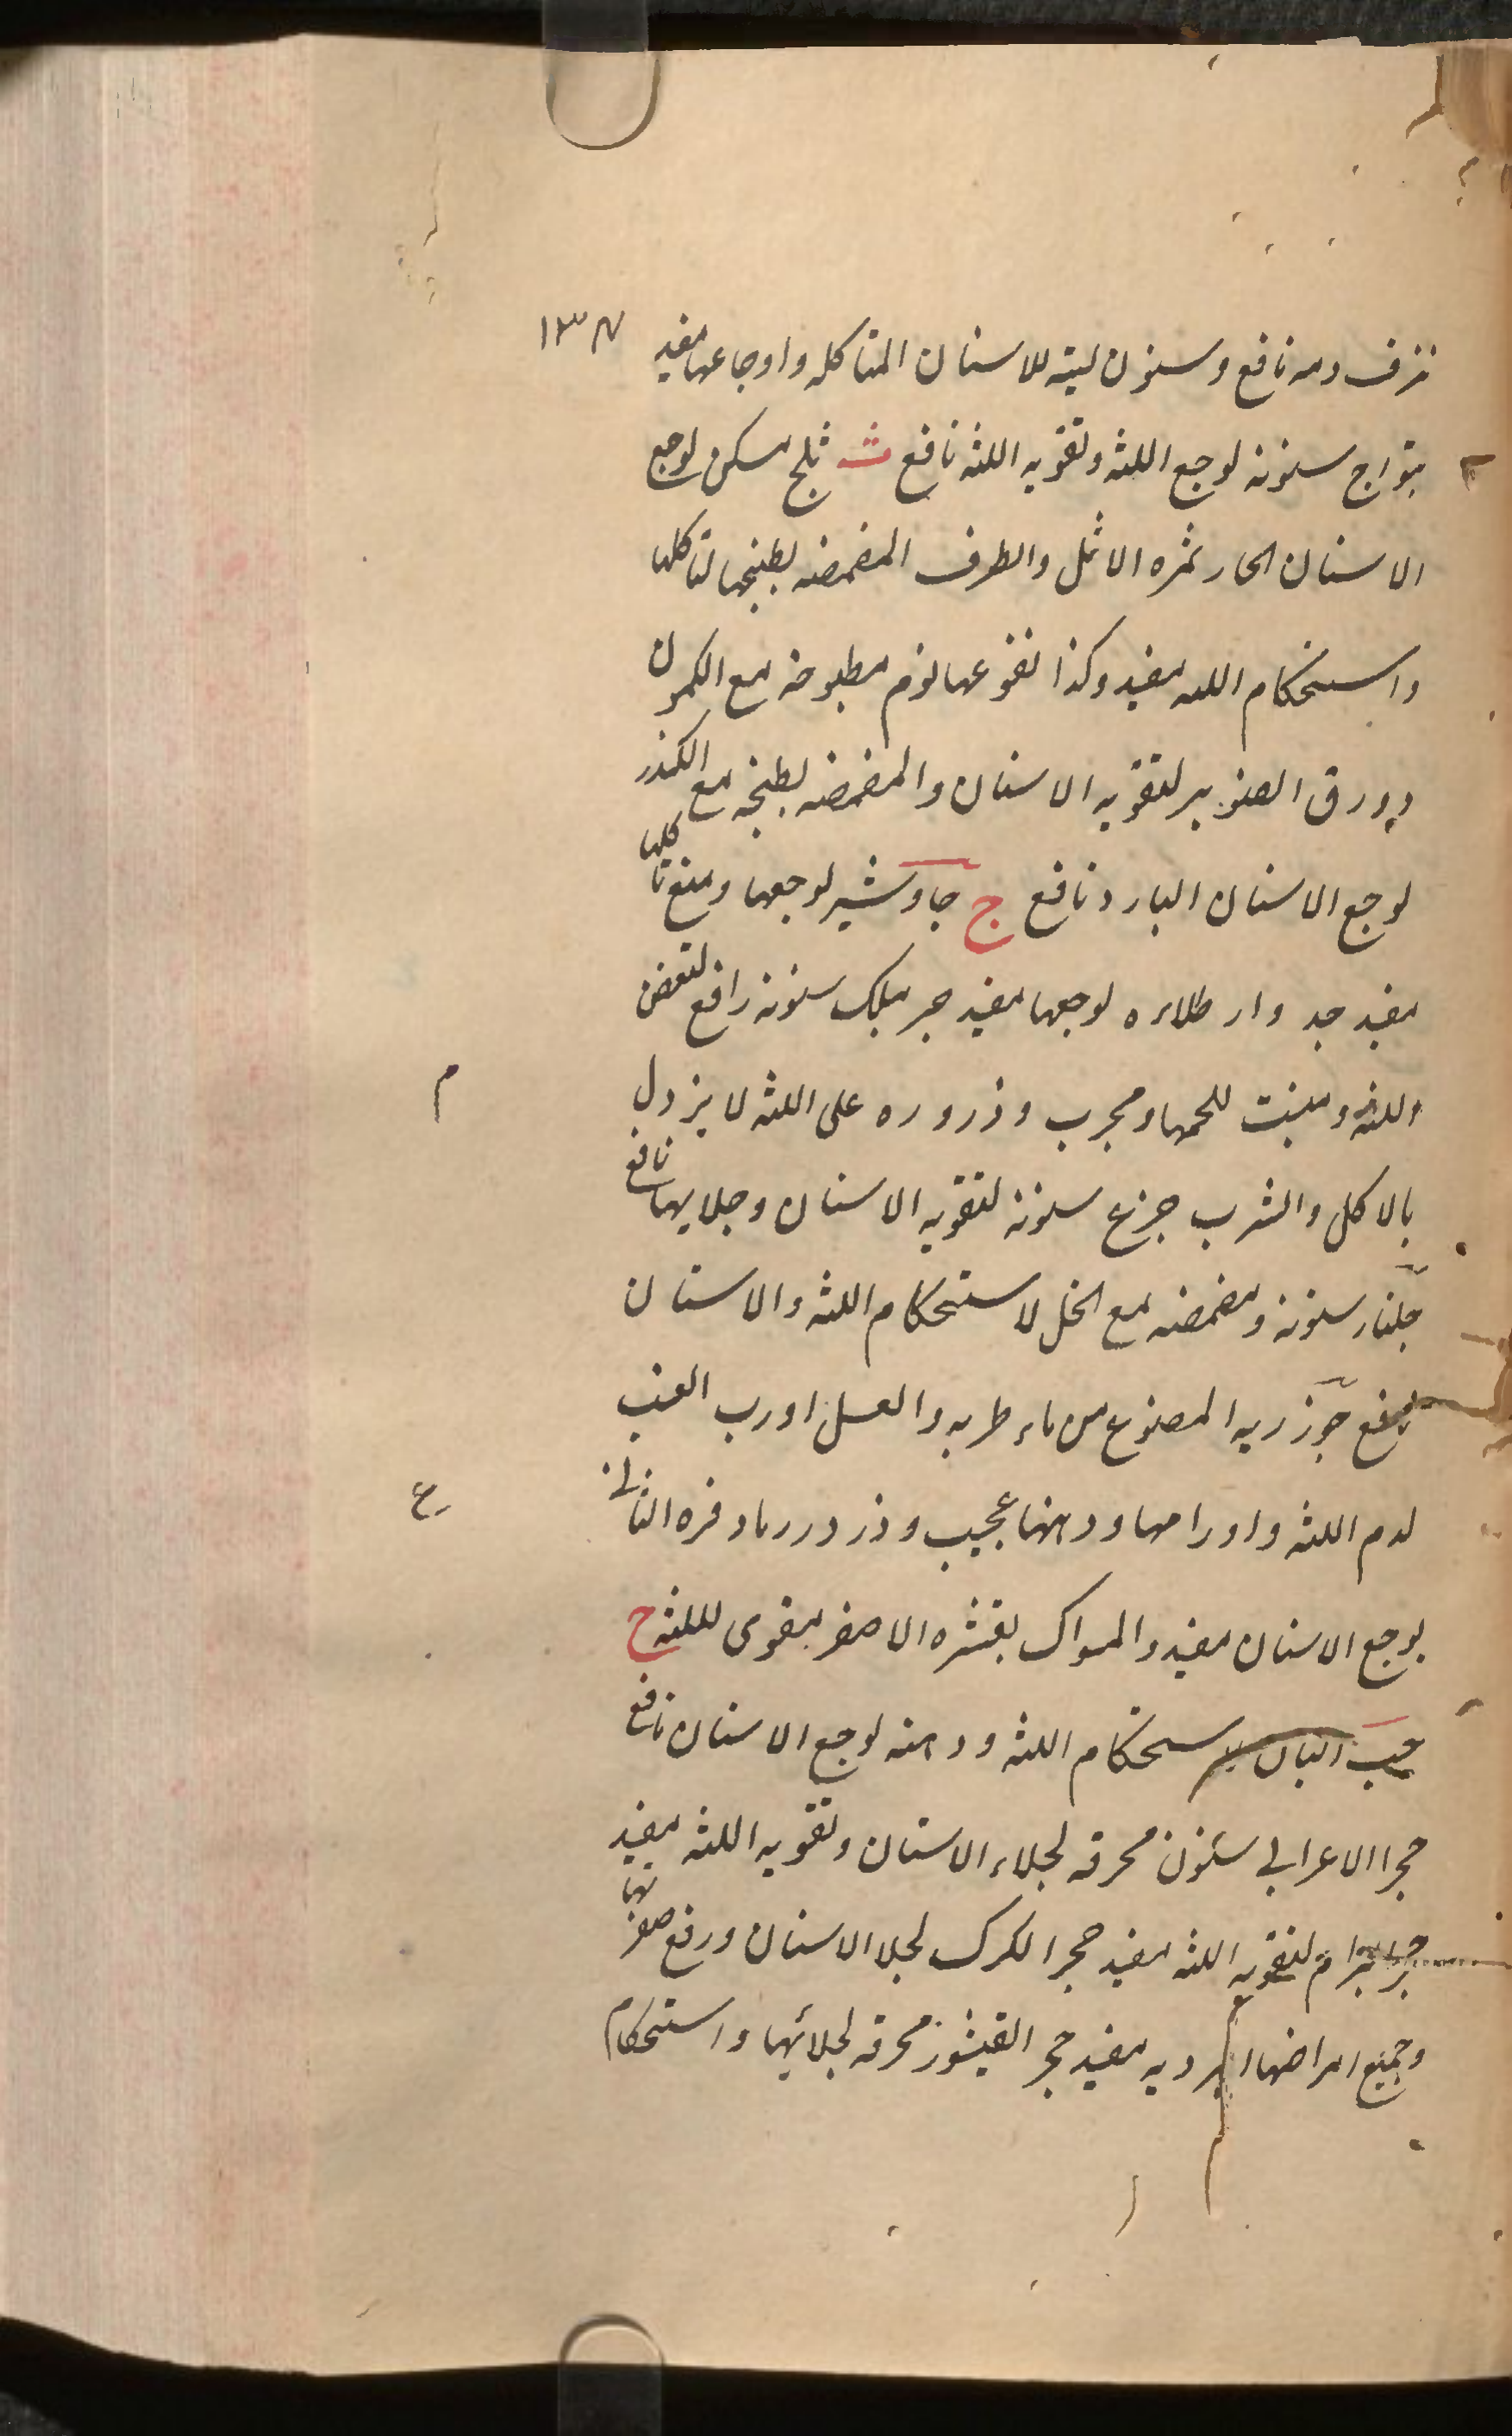 ١٣٧
نزف دمه نافع وسنون لبنه للاسنان المتاكله واوجاعها مفيد
سنونه لوجع اللثه ولتقويه اللثه نافع ث ثلج مسكن لوجع
الاسنان الحار ثمره الاثل والطرفا المضمضه بطبيخها لتاكلها
واستحكام اللثه مفيد وكذا نقوعها ثوم مطبوخه مع الكمون
وورق الصنوبر لتقويه الاسنان والمضمضه بطبيخه مع الكندر
لوجع الاسنان البارد نافع ج جاوشير لوجعها ومنع تاكلها
مفيد جدوار طلاءه لوجعها مفيد سنونه رافع لتعفن
اللثه ومنبت للحمها ومجرب وذروره على اللثه لا يزول
م
بالاكل والشرب جزع سنونه لتقويه الاسنان وجلايها نافع
جلنار سنونه ومضمضه مع الخل لاستحكام اللثه والاسنان
نافع جوز ربه المصنوع من ماء طريه والعسل او رب العنب
لدم اللثه واورامها ودهنها عجيب
ع
لوجع الاسنان مفيد والمسواك بقشره الاصفر مقوى لللثه ح
حب البان لاستحكام اللثه ودهنه لوجع الاسنان نافع
حجر الاعرابي سنونه محرقه لجلاء الاسنان وتقويه اللثه مفيد
لتقويه اللثه مفيد حجر الكرك لجلا الاسنان ورفع صفرتها
وجميع امراضها مفيد حجر القيشور محرقه لجلائها واستحكام